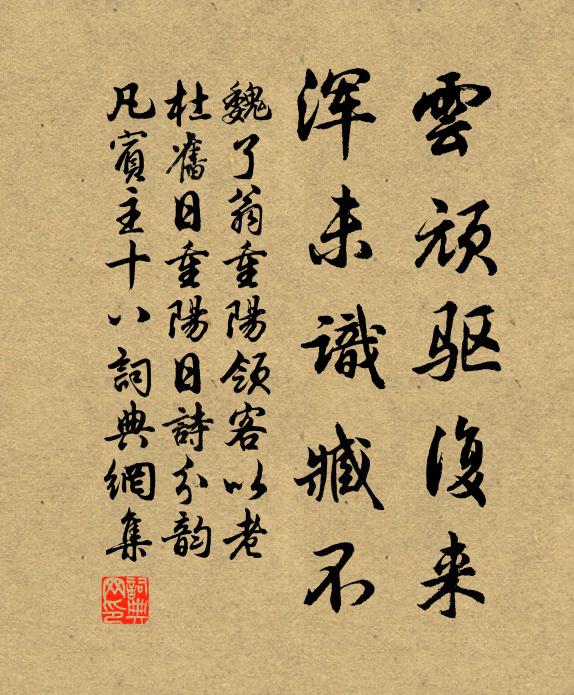 雲頑驱復来
渾未識臧不
魏了翁重陽領客以老
杜舊日重陽日詩分韵
凡賓主十八詞典網集
詞典
网印